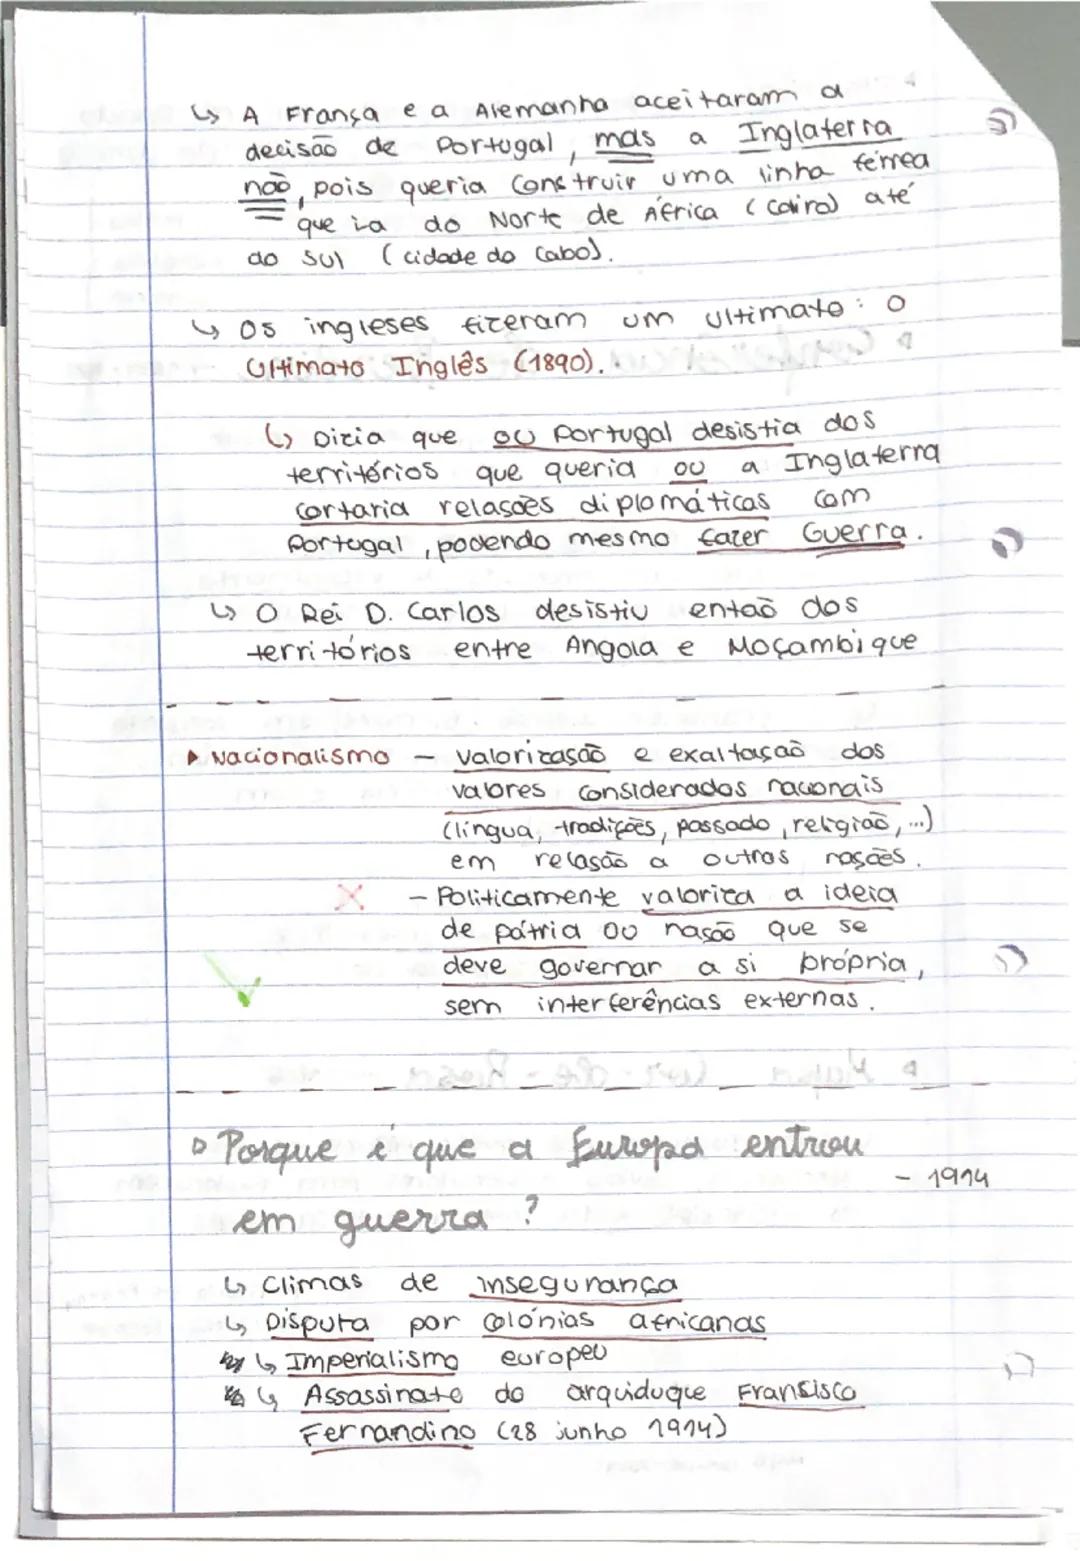 ↳ A França e a Alemanha aceitaram a
decisão de Portugal, mas a Inglaterra
não, pois queria construir uma linha férrea
que ia do Norte de África (Cairo) até
do sul (cidade do Cabo).
↳ Os ingleses fizeram um ultimato: o
Ultimato Inglês (1890).
↳ Dizia que ou Portugal desistia dos
territórios que queria ou a Inglaterra
cortaria relações diplomáticas com
Portugal, podendo mesmo fazer Guerra.
↳ O Rei D. Carlos desistiu então dos
territórios entre Angola e Moçambique
▸ Nacionalismo – valorização e exaltação dos
valores considerados nacionais
(língua, tradições, passado, religião, ...)
em relação a outras nações.
– Politicamente valoriza a ideia
de pátria ou nação que se
deve governar a si própria,
sem interferências externas.
▹ Porque é que a Europa entrou
em guerra? – 1914
↳ Climas de insegurança
↳ Disputa por colónias africanas
↳ Imperialismo europeu
↳ Assassinato do arquiduque Fransisco
Fernandino (28 junho 1914)